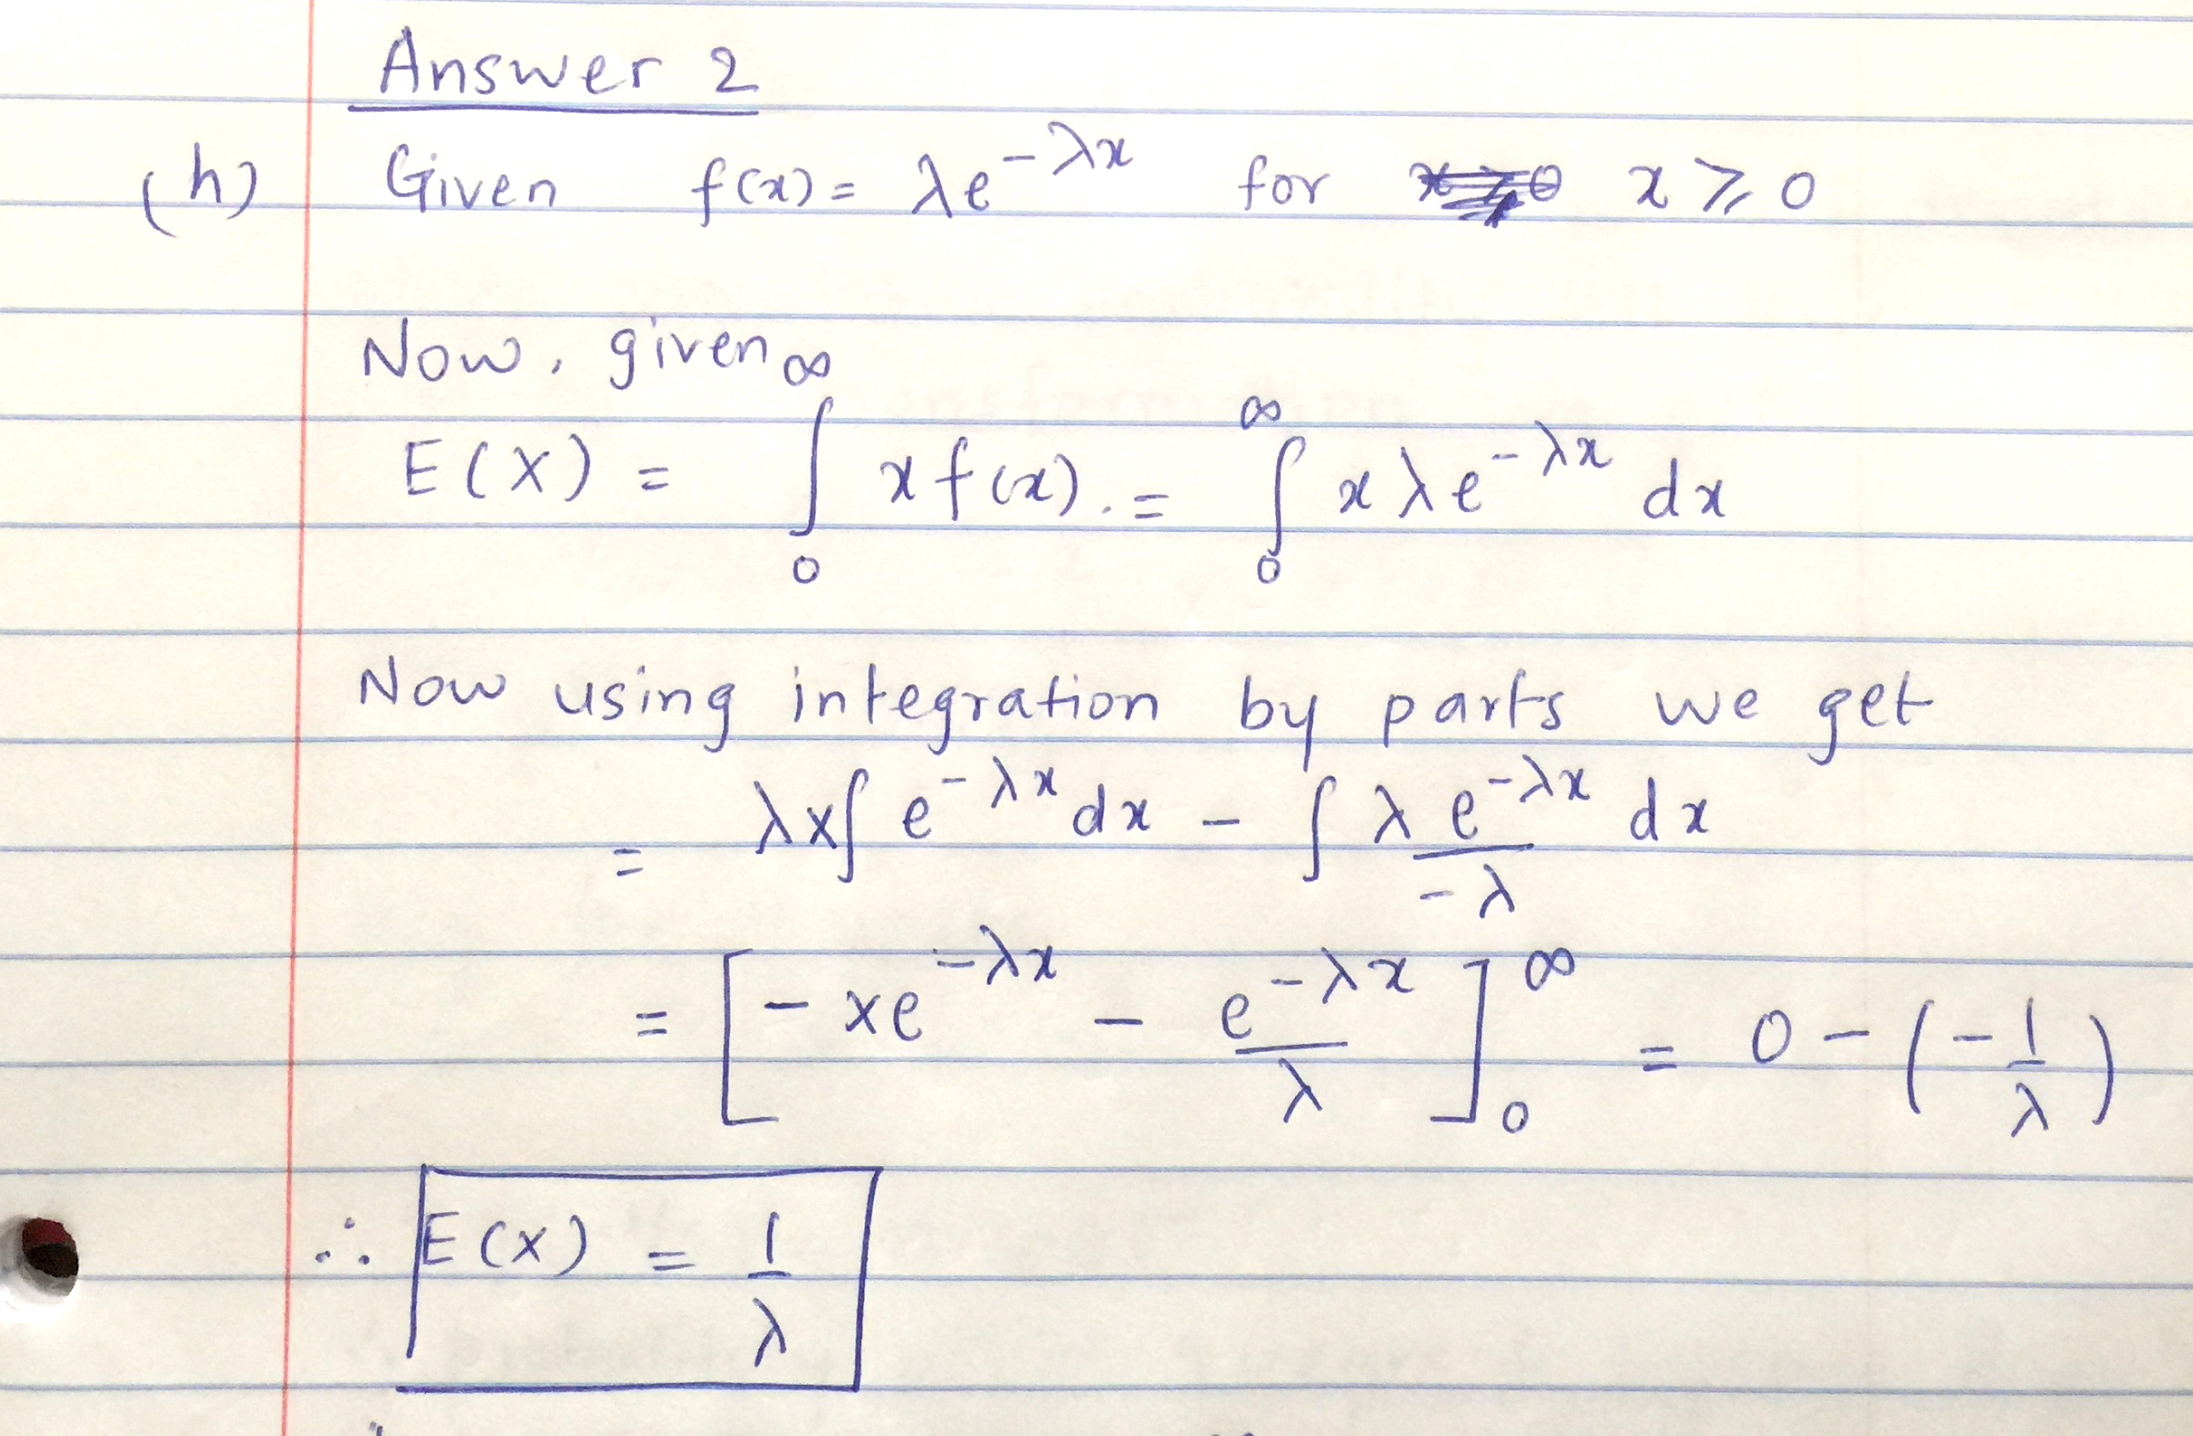 Answer 2
(h) Given f(x) = λe^{-λx} for x ≥ 0
Now, given
E(X) = ∫_0^∞ x f(x). = ∫_0^∞ x λe^{-λx} dx
Now using integration by parts we get
= λx∫ e^{-λx} dx - ∫ λ \frac{e^{-λx}}{-λ} dx
= [-xe^{-λx} - \frac{e^{-λx}}{λ}]_0^∞ = 0 - (-\frac{1}{λ})
∴ E(X) = \frac{1}{λ}